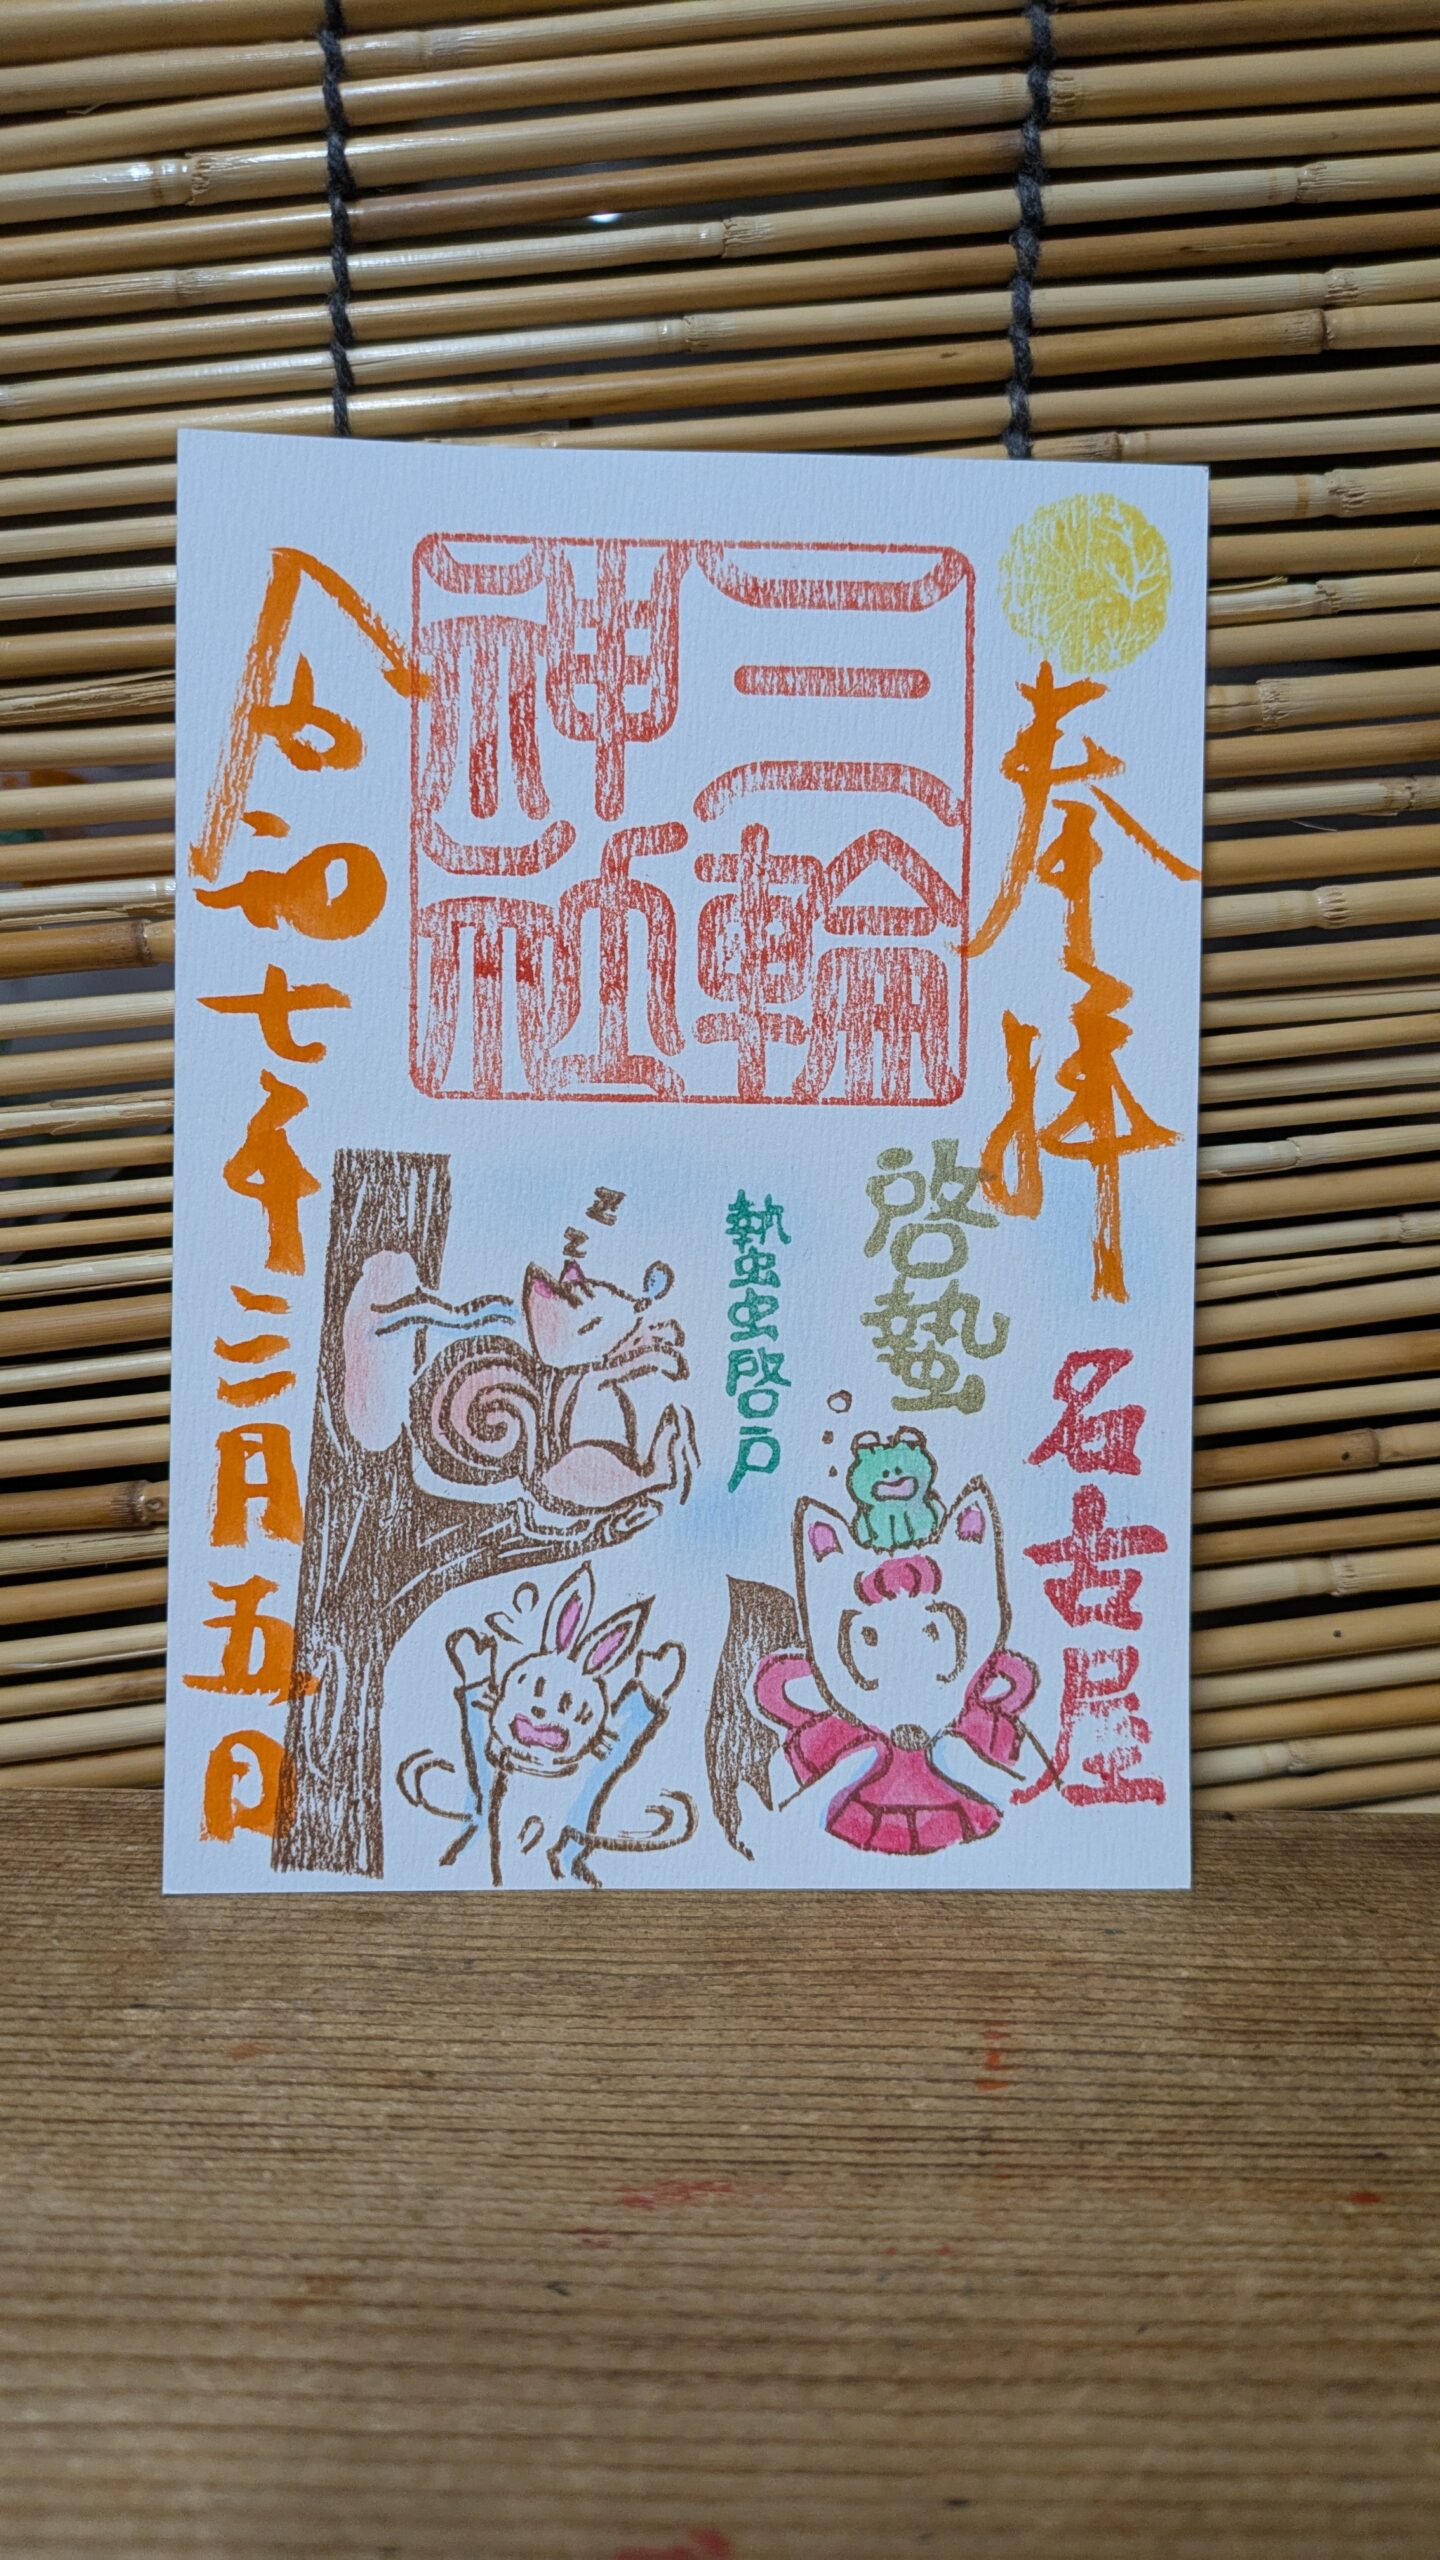 奉拝
名古屋
啓蟄
蟄虫啓戸
三輪
神社
zzz
令和七年三月五日